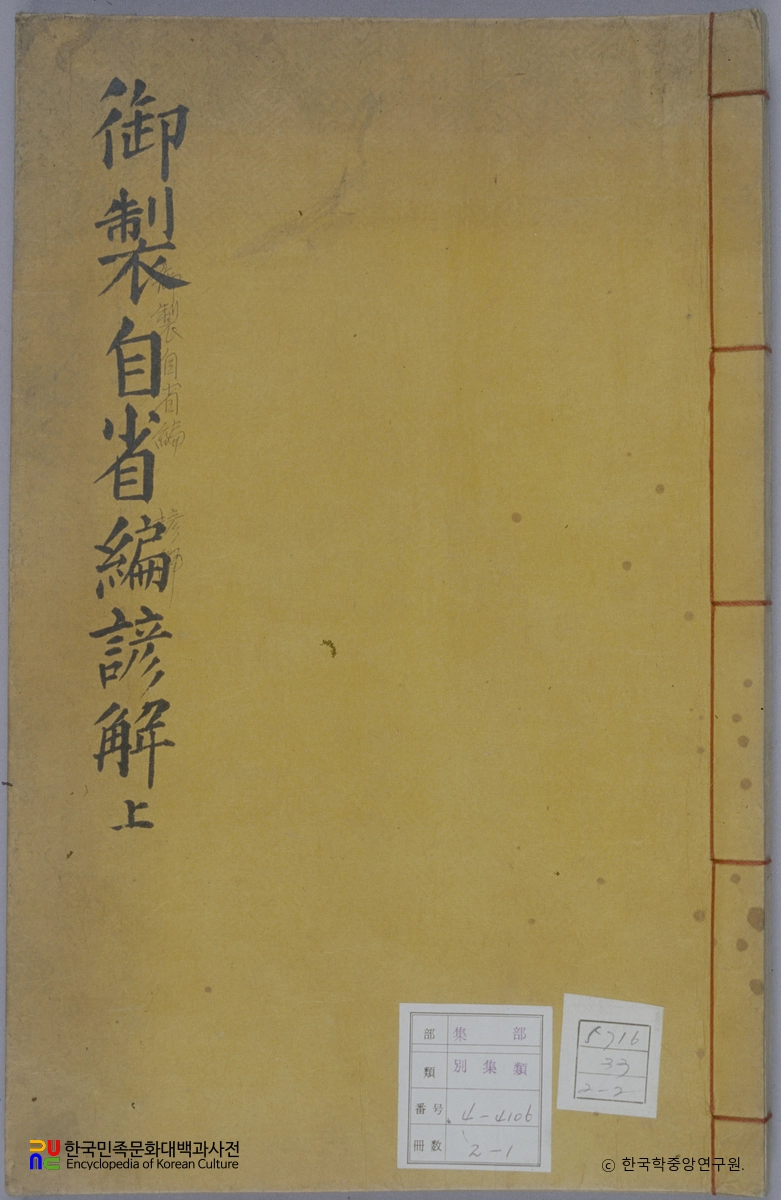 御製自省編諺解上
御製自省編
部 集部
類 別集類
番号 4-4106
冊数 2-1
5716
33
2-2
한국민족문화대백과사전
Encyclopedia of Korean Culture
ⓒ 한국학중앙연구원.